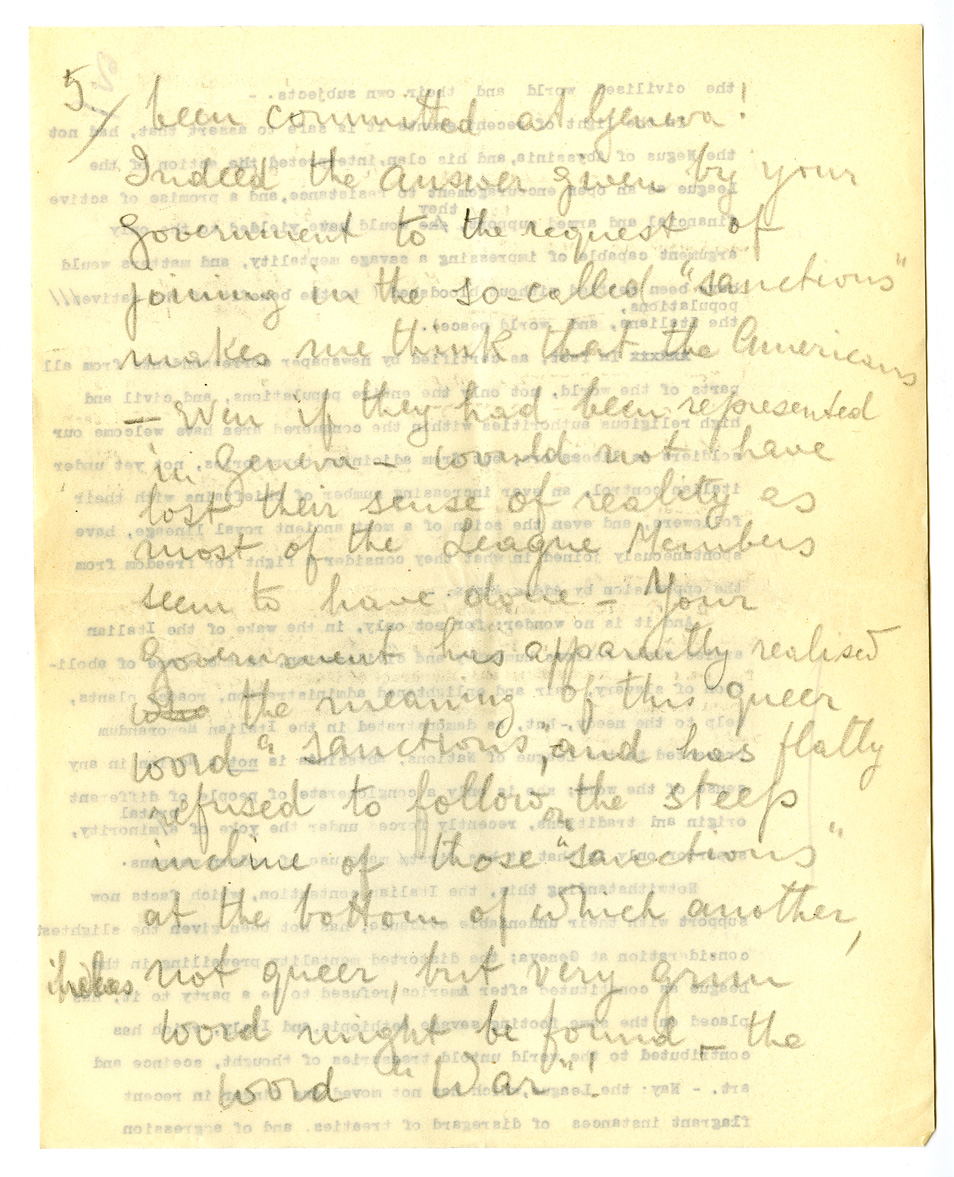 5./ been committed at Geneva!
Indeed the answer given by your
Government to the request of
joining in the so-called "sanctions"
makes me think that the Americans
— even if they had been represented
in Geneva — would not have
lost their sense of reality as
most of the League Members
seem to have done — Your
Government has apparently realised
the meaning of this queer
word "sanctions", and has flatly
refused to follow on the steep
incline of those "sanctions"
at the bottom of which another,
not queer, but very grim
word might be found — the
word "War"!